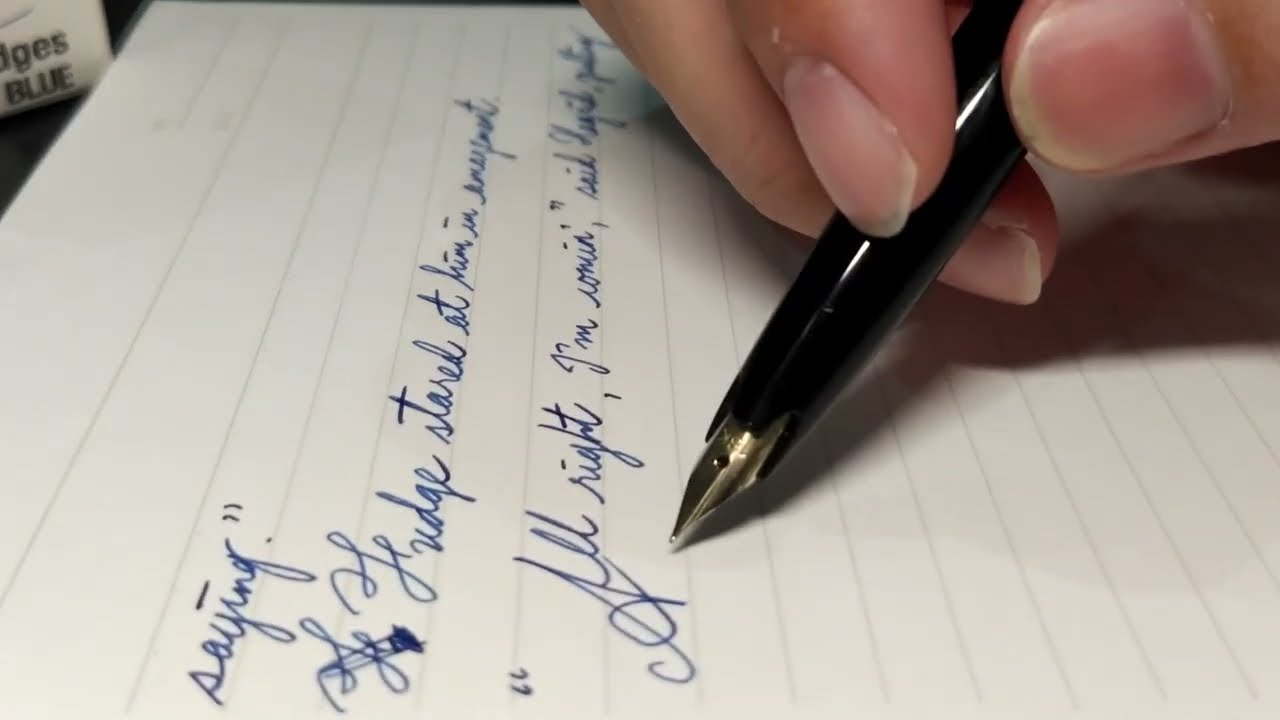 dges
BLUE
saying."
Fudge stared at him in amazement.
"All right, I'm comin'," said Hagrid, putting